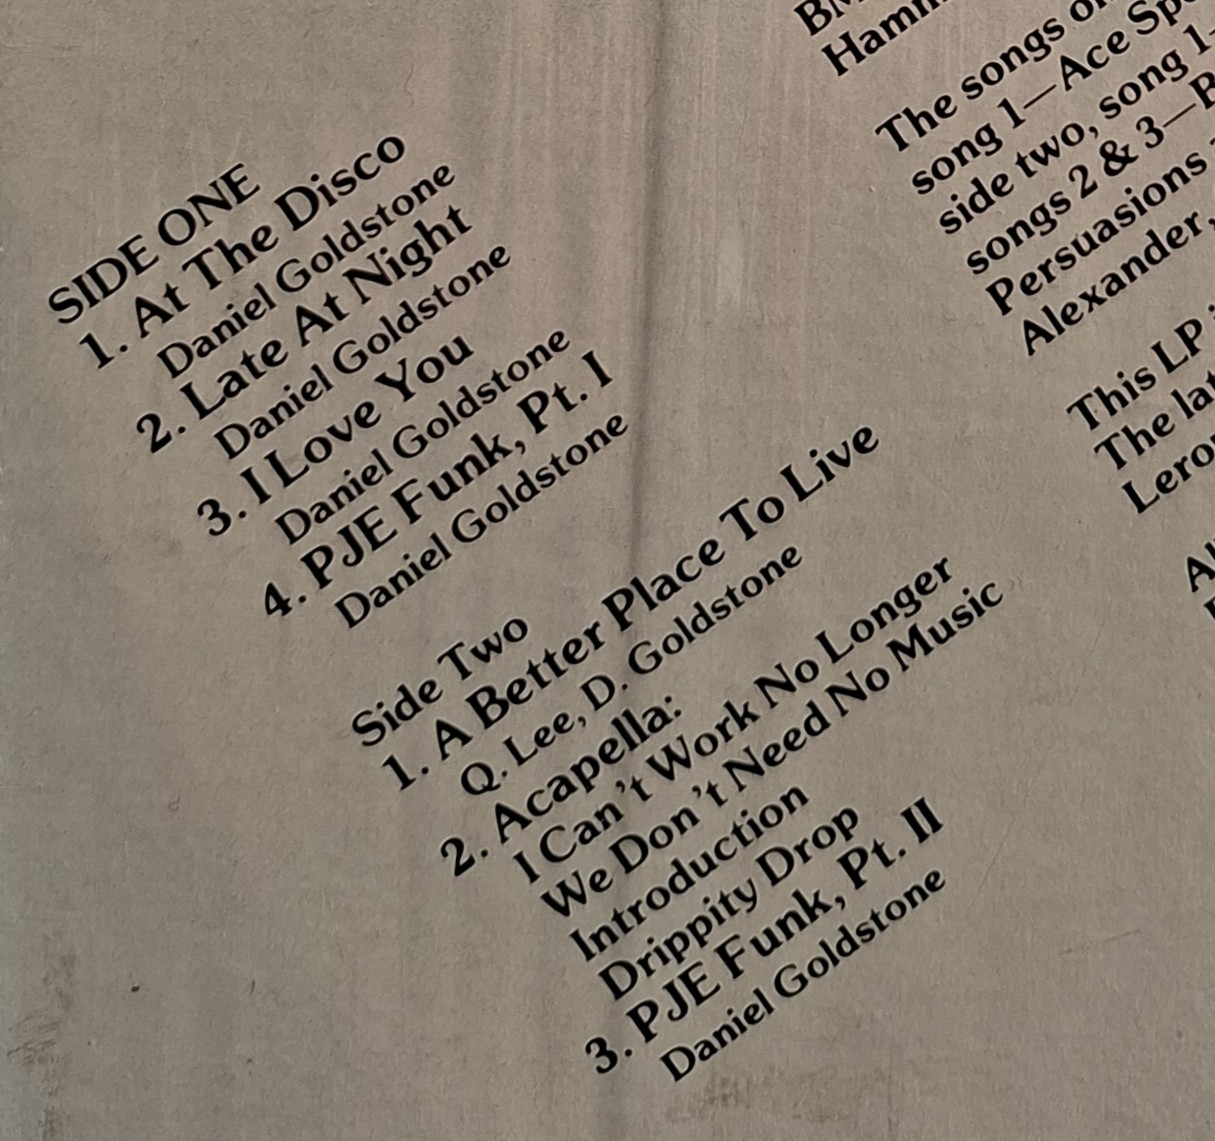 SIDE ONE
1. At The Disco
Daniel Goldstone
2. Late At Night
Daniel Goldstone
3. I Love You
Daniel Goldstone
4. PJE Funk, Pt. I
Daniel Goldstone
Side Two
1. A Better Place To Live
Q. Lee, D. Goldstone
2. Acapella:
I Can't Work No Longer
We Don't Need No Music
Introduction
Drippity Drop
3. PJE Funk, Pt. II
Daniel Goldstone
The songs
song 1—Ace
side two, song 1
songs 2 & 3—
Persuasions
Alexander,
This LP
The